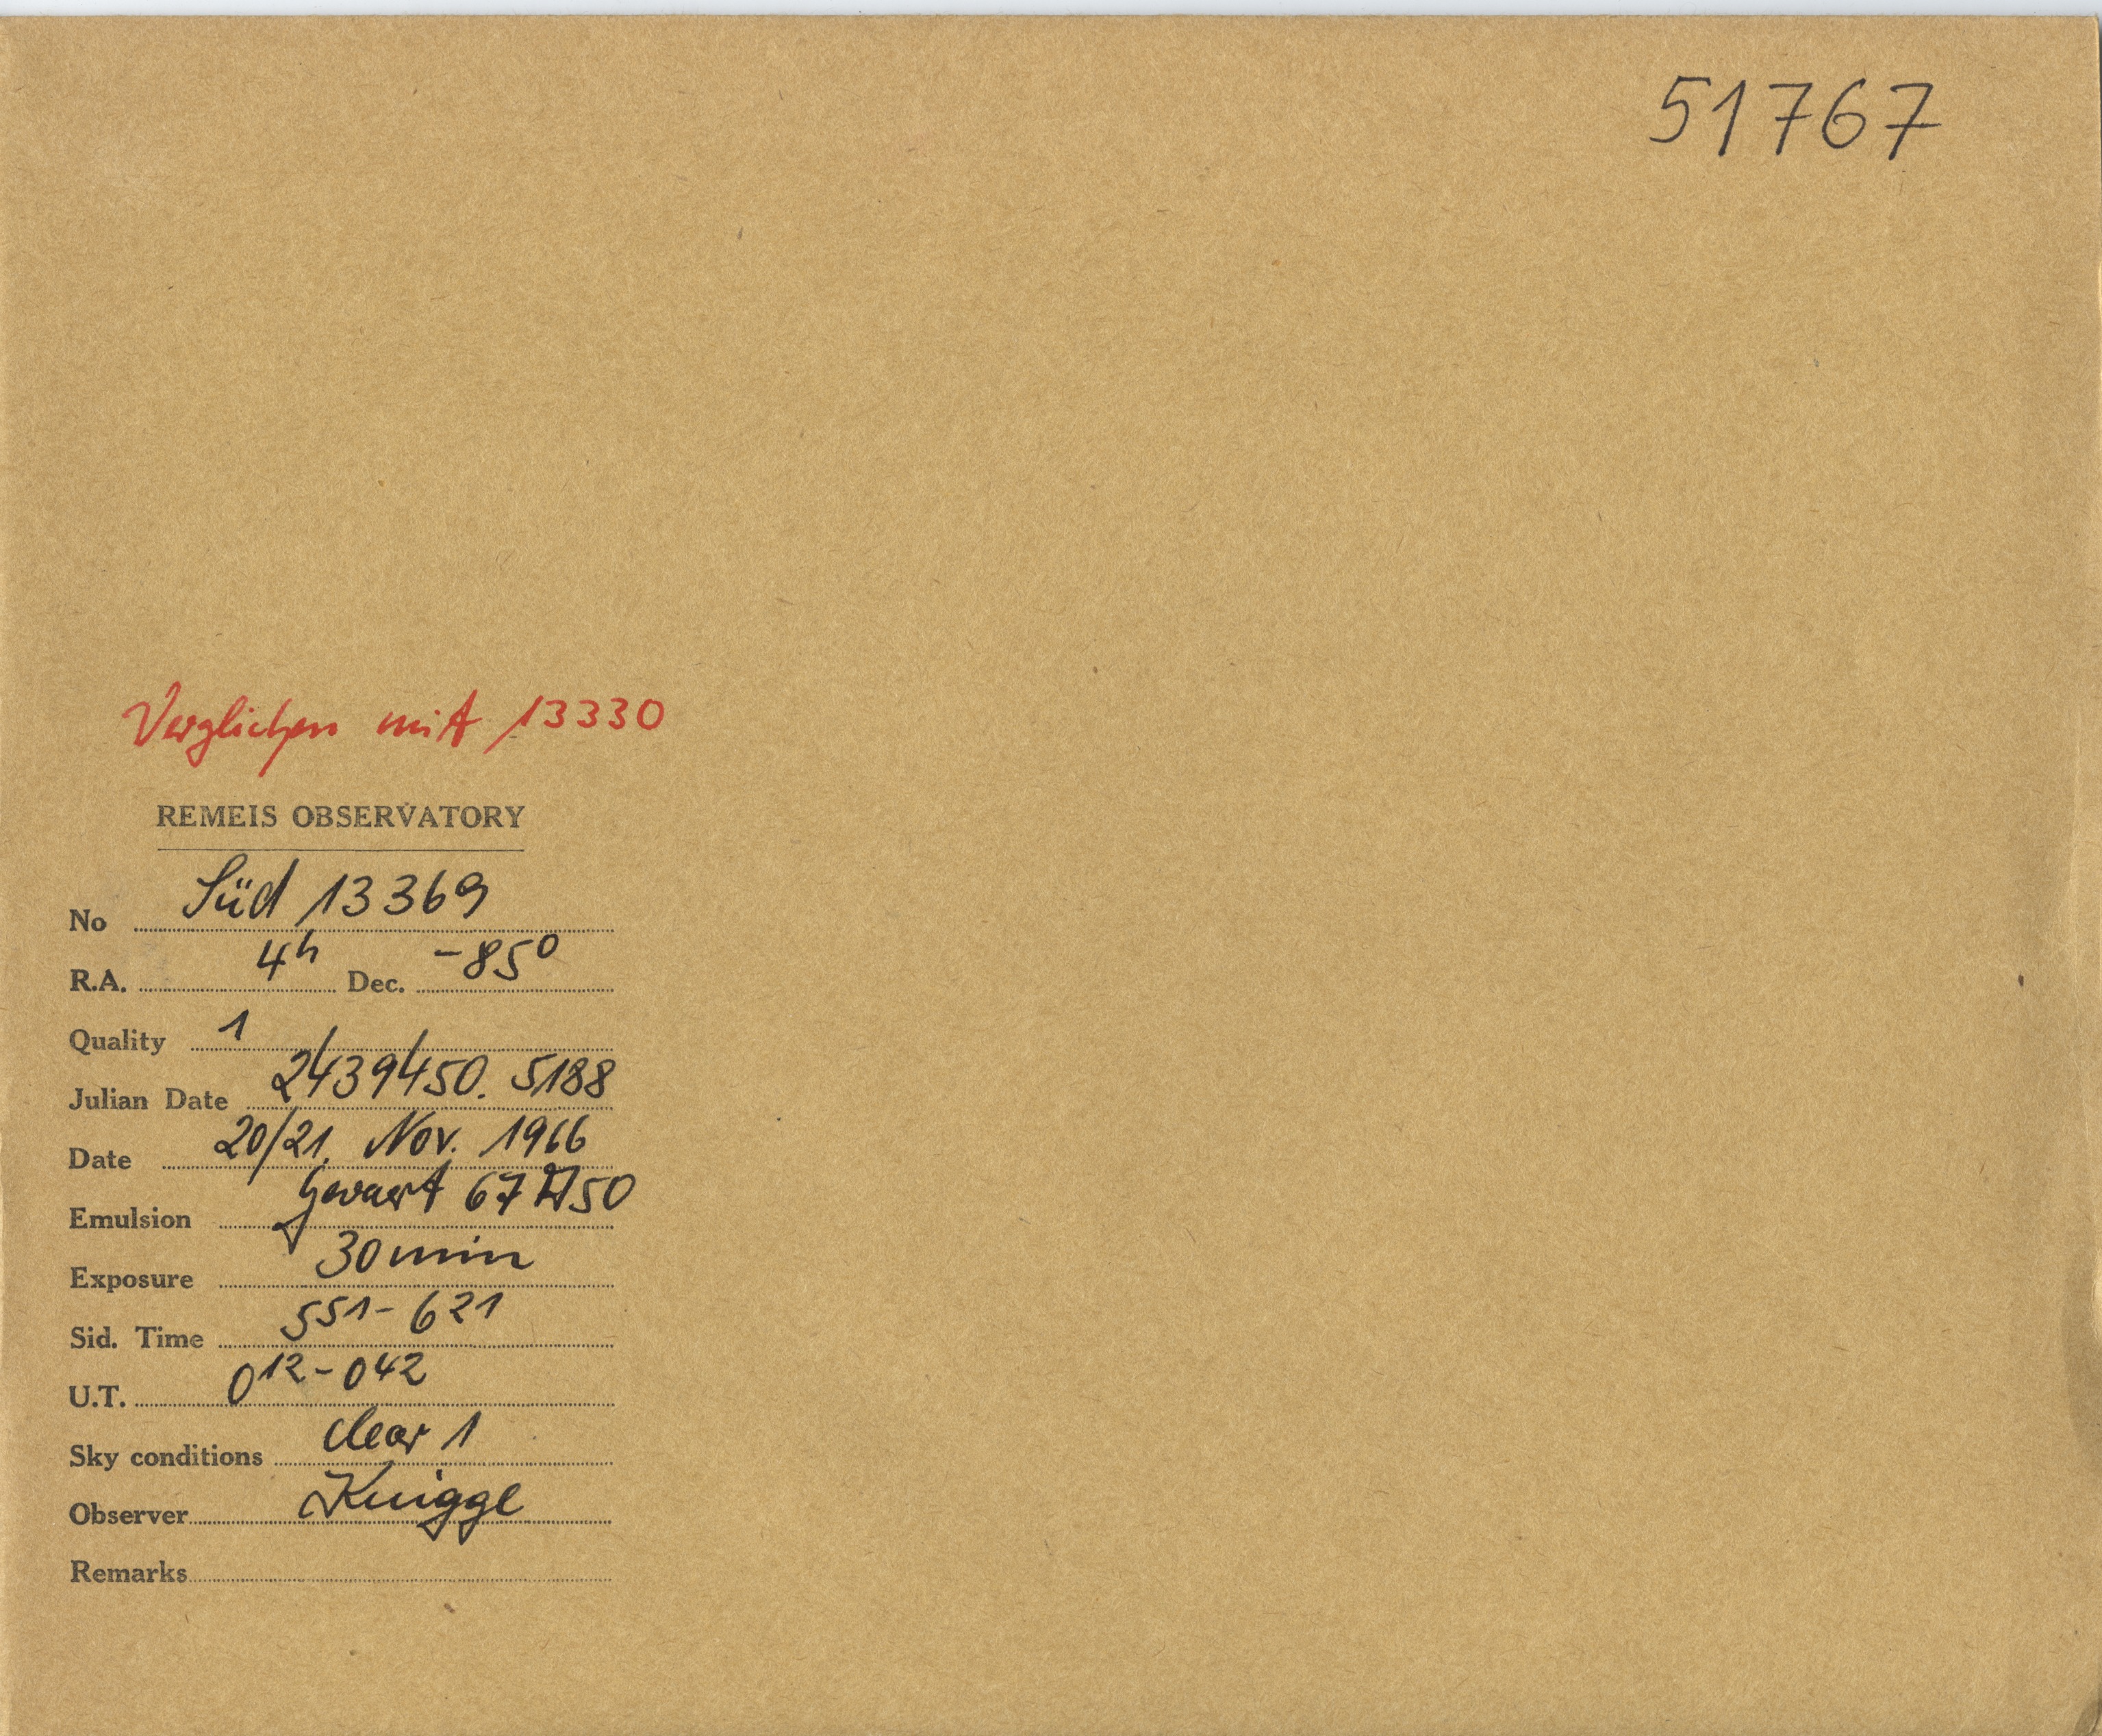 51767
Verglichen mit 13330
REMEIS OBSERVATORY
No Süd 13369
R.A. 4h Dec. -85°
Quality 1
Julian Date 2439450.5188
Date 20/21. Nov. 1966
Emulsion Gevaert 67 50
Exposure 30 min
Sid. Time 5 51 - 6 21
U.T. 0 12 - 0 42
Sky conditions clear 1
Observer Knigge
Remarks